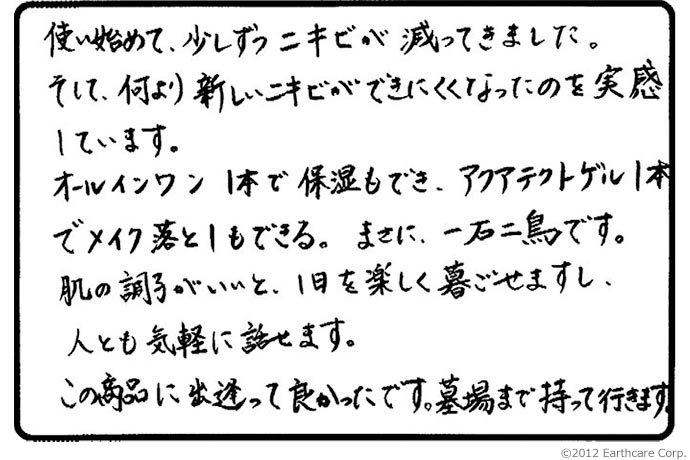 使い始めて、少しずつニキビが減ってきました。
そして、何より新しいニキビができにくくなったのを実感
しています。
オールインワン1本で保湿もでき、アクアテクトゲル1本
でメイク落としもできる。まさに、一石二鳥です。
肌の調子がいいと、1日を楽しく暮ごせますし、
人とも気軽に話せます。
この商品に出逢って良かったです。墓場まで持って行きます。
©2012 Earthcare Corp.